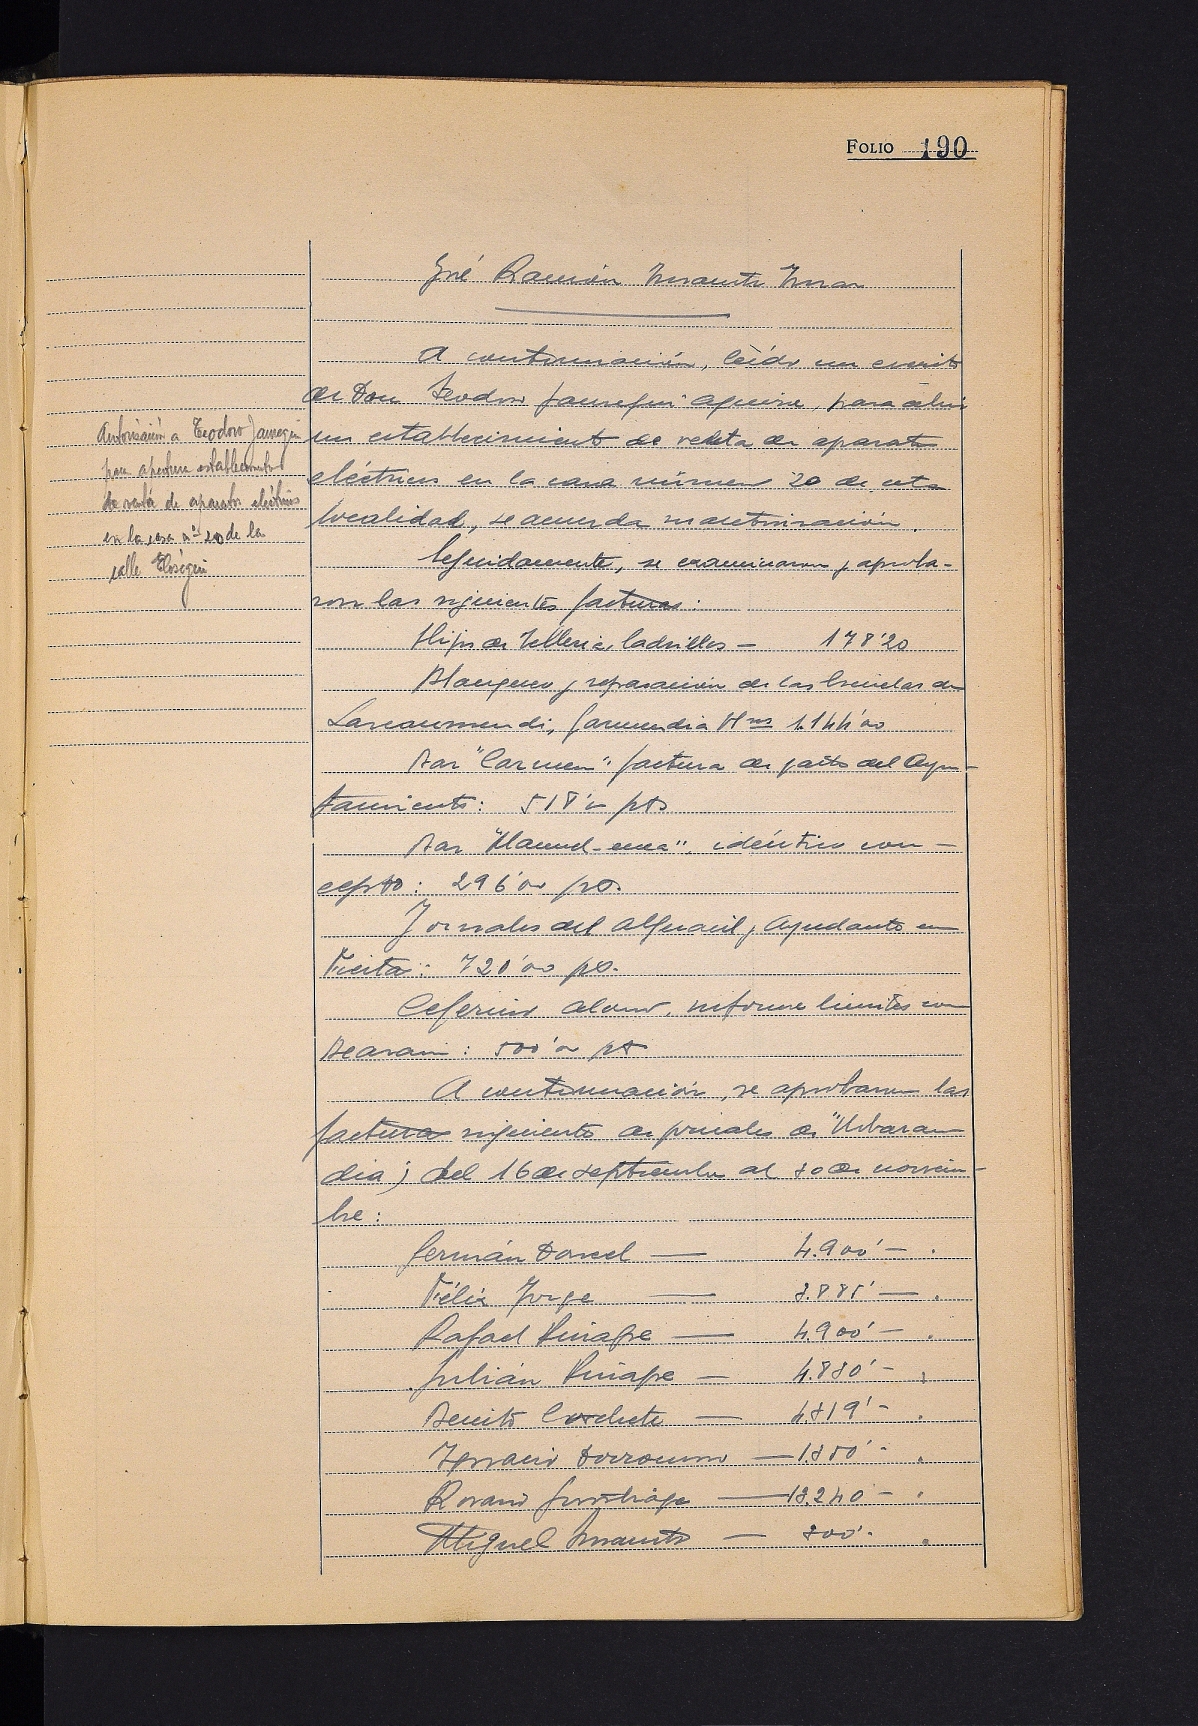 FOLIO 190
José Ramón
A continuación, leído un escrito
de Don Teodoro Jauregui Aguirre, para abrir
un establecimiento de venta de aparatos
eléctricos en la casa número 20 de esta
localidad, se acuerda su autorización.
Autorisación a Teodoro Jauregui
para apertura establecimiento
de venta de aparatos eléctricos
en la casa nº 20 de la
calle Elósegui
Seguidamente, se examinaron y aproba-
ron las siguientes facturas:
Hijos de Telleria, ladrillos — 178'20
Blanqueo y reparación de las Escuelas de
Larraumendi, Garmendia Hnos 1.144'00
Bar "Carmen" factura de gasto del Ayun-
tamiento: 518'00 pts
Bar "Manuel-enea", idéntico con-
cepto: 296'00 pts.
Jornales del Alguacil y Ayudante en
Visita: 720'00 pts.
Ceferino informe limites con
Beasain: 500'00 pts
A continuación, se aprobaron las
facturas siguientes de jornales de "Urbaran-
dia", del 16 de septiembre al 30 de noviem-
bre:
Germán Dorcel — 4.900'— .
Félix Jorge — 3.885'— .
Rafael — 4.900'— .
Julián — 4.830'— .
Benito Corchete — 4.319'— .
Ignacio — 1.350'— .
Rosario — 13.240'— .
Miguel — 300'— .